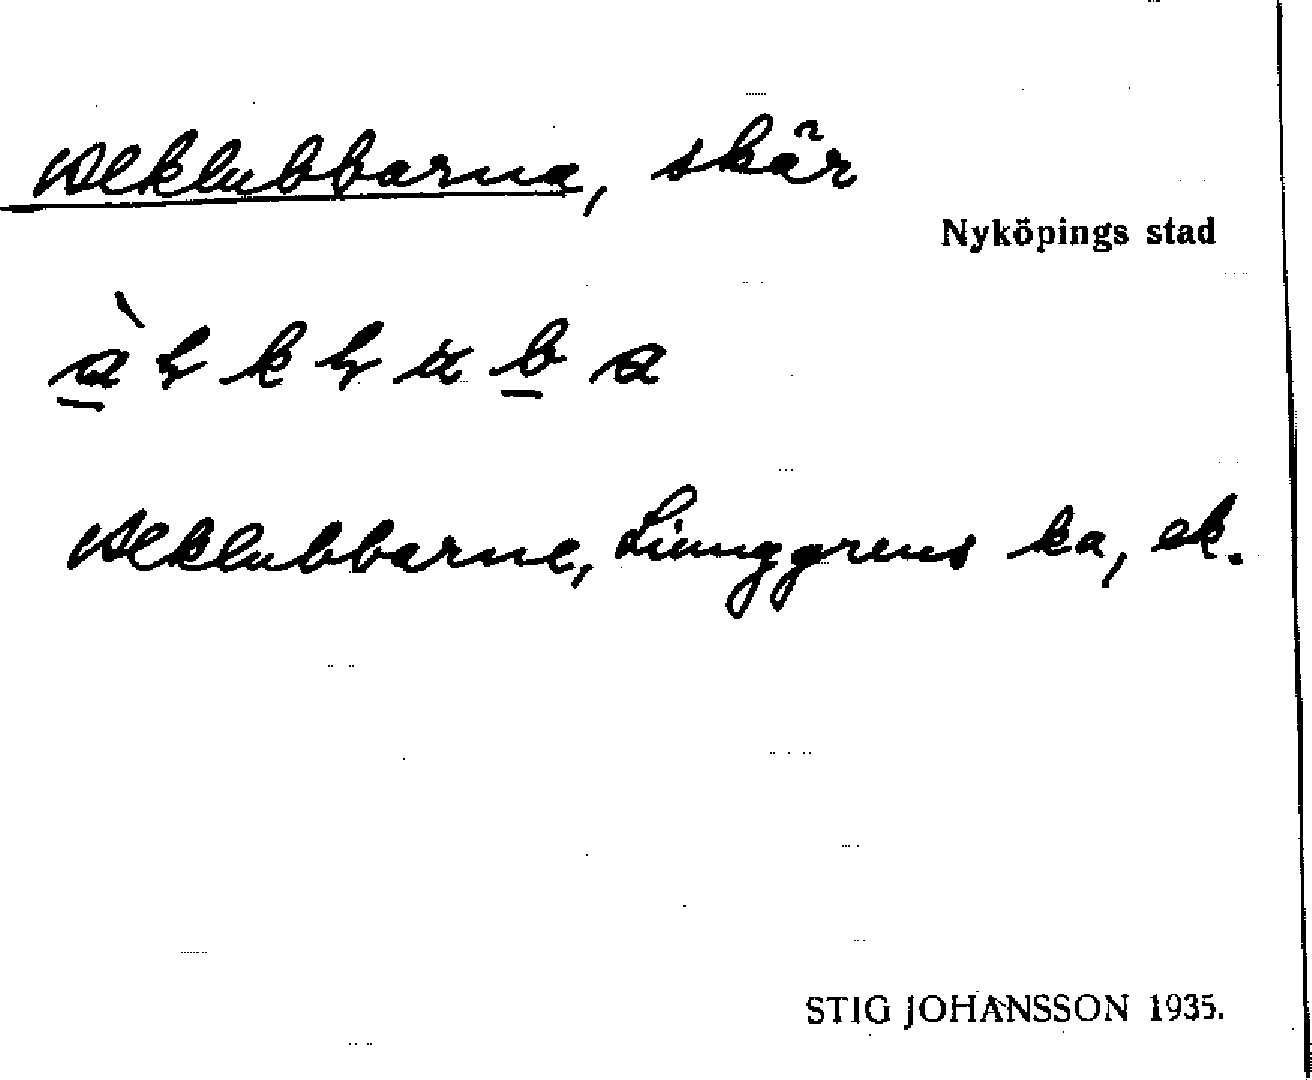 Alklubbarna, skär
Nyköpings stad
Alklubbarne, Liunggrens ka, ek.
STIG JOHANSSON 1935.